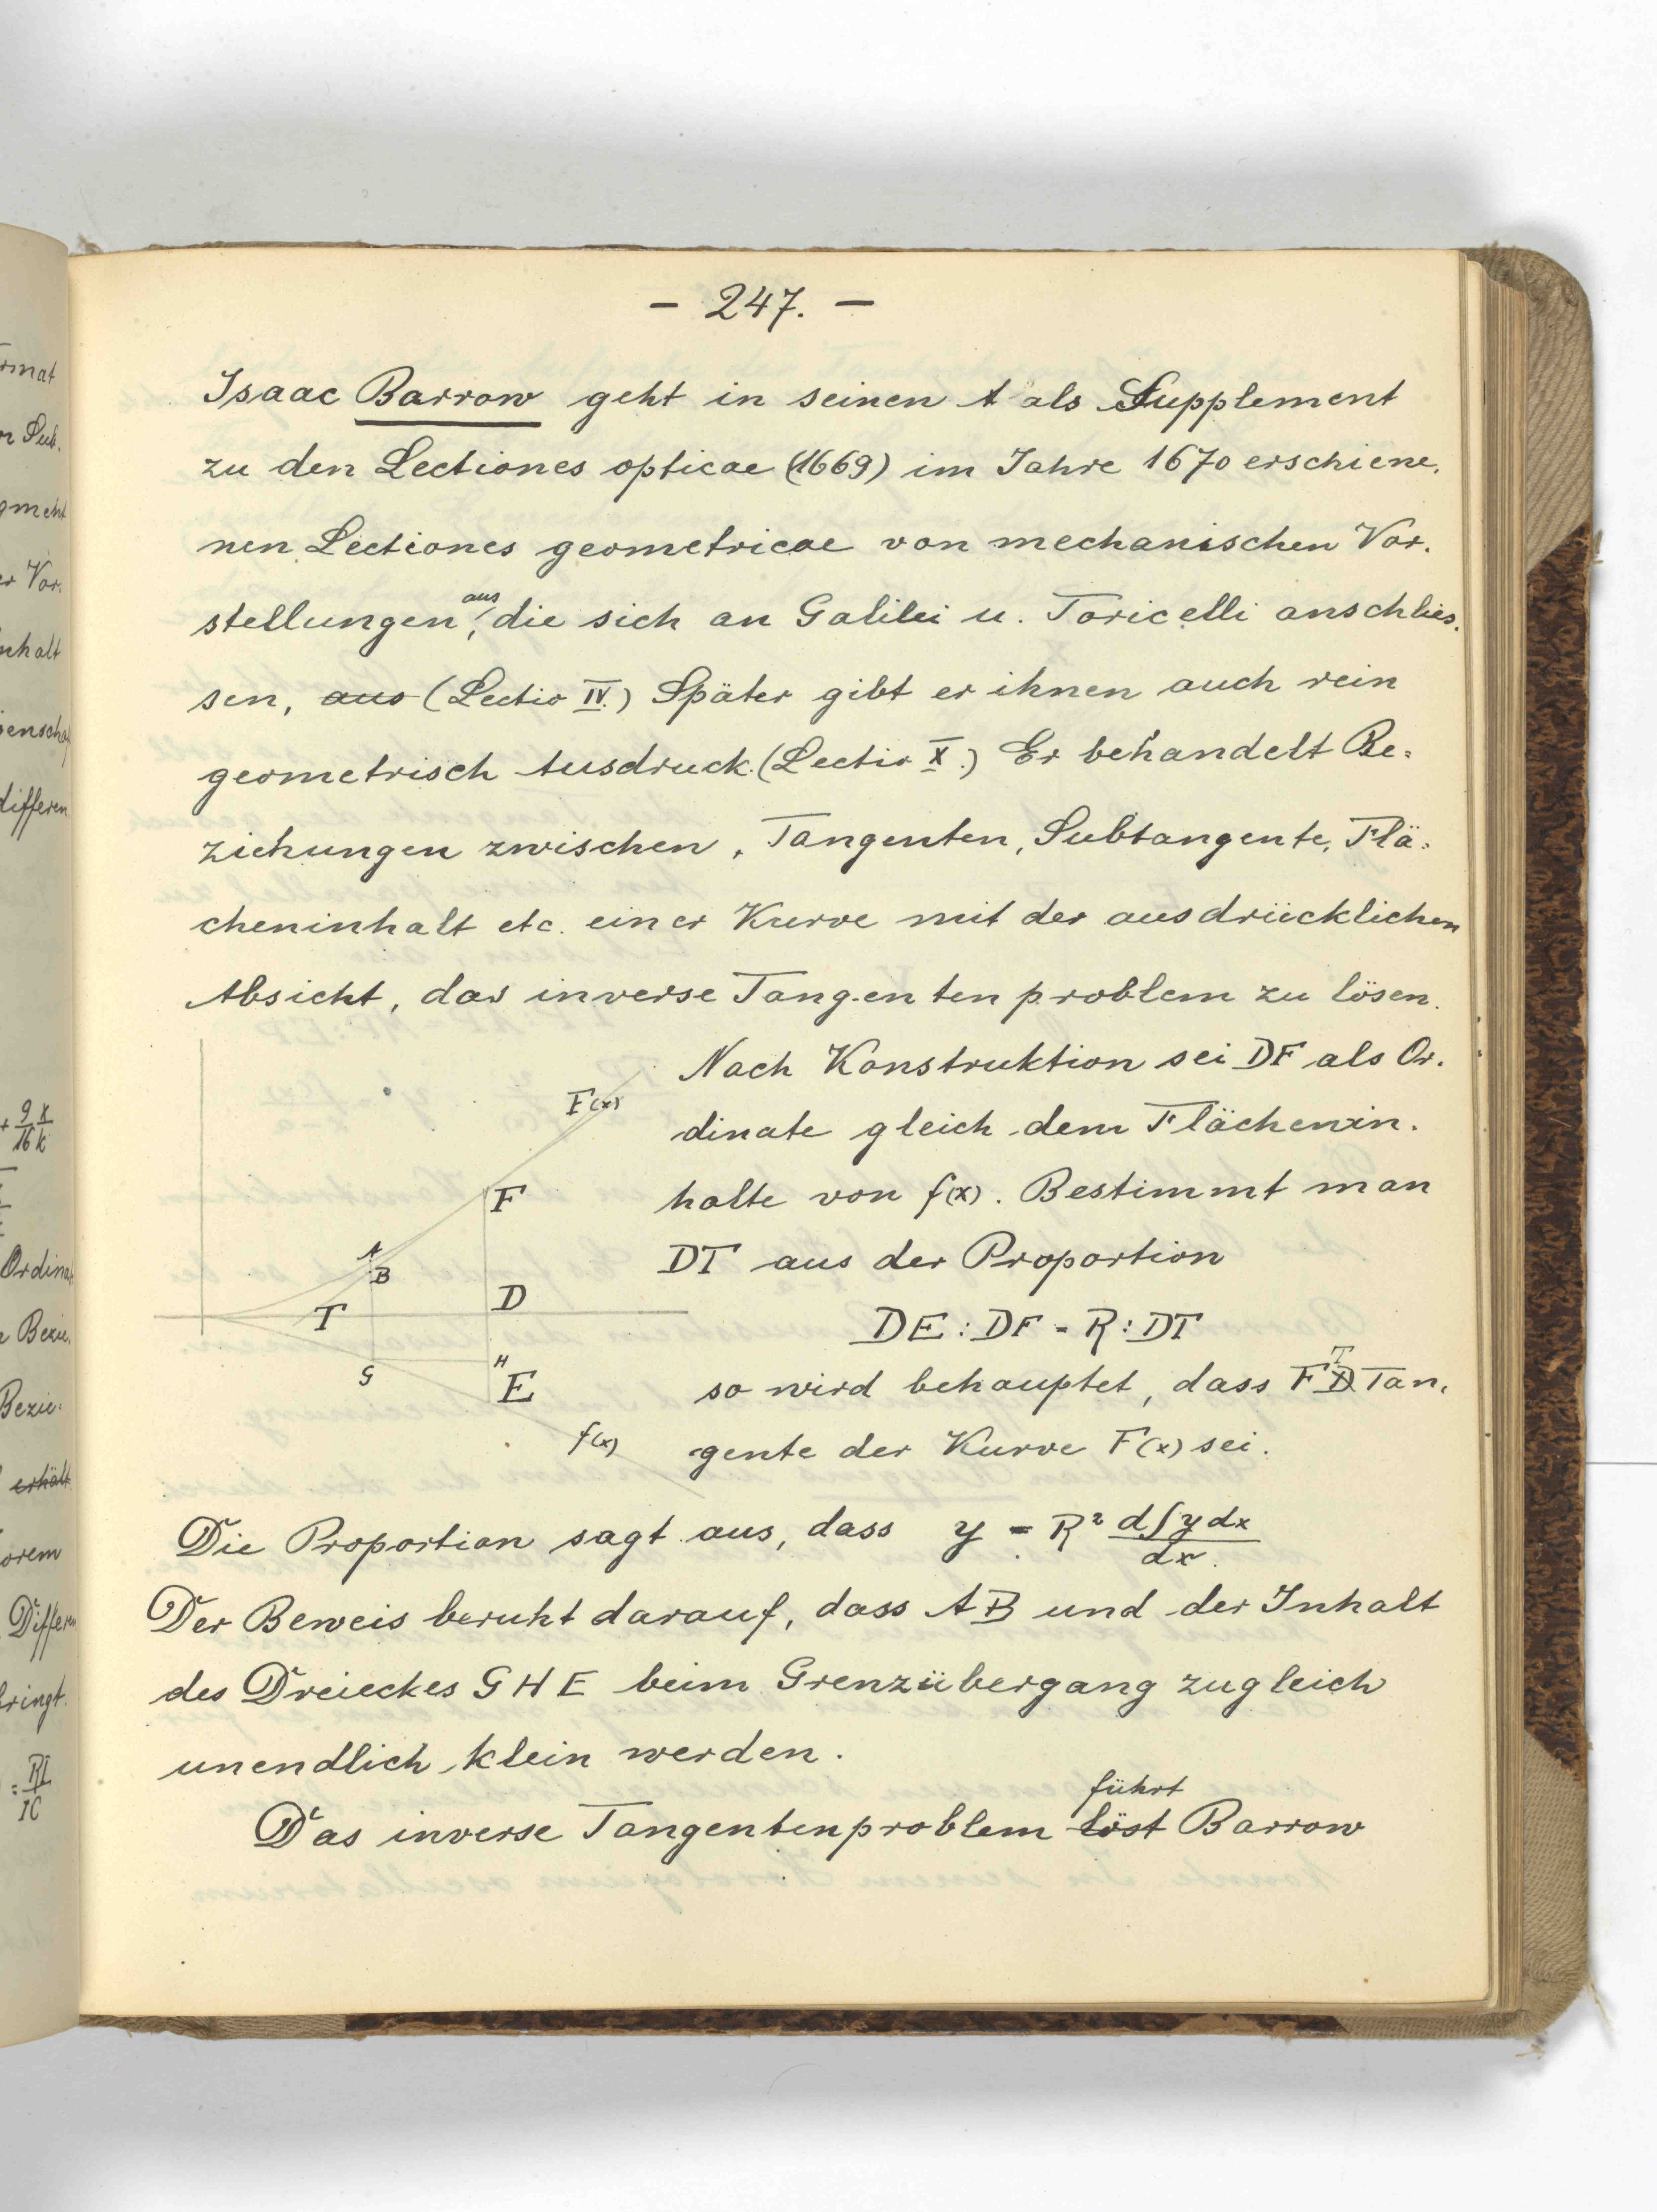 - 247. -
Isaac Barrow geht in seinen A als Supplement
zu den Lectiones opticae (1669) im Jahre 1670 erschiene.
nen Lectiones geometricae von mechanischen Vor.
stellungen aus, die sich an Galilei u. Toricelli anschlies.
sen, aus (Lectio IV.) Später gibt er ihnen auch rein
geometrisch Ausdruck. (Lectio X.) Er behandelt Be=
ziehungen zwischen, Tangenten, Subtangente, Flä=
cheninhalt etc. einer Kurve mit der ausdrücklichen
Absicht, das inverse Tangentenproblem zu lösen.
Nach Konstruktion sei DF als Or.
dinate gleich dem Flächenin.
halte von f(x). Bestimmt man
DT aus der Proportion
DE : DF = R : DT
so wird behauptet, dass FT Tan.
gente der Kurve F(x) sei.
F(x)
F
A
B
T
D
G
H
E
f(x)
Die Proportion sagt aus, dass y = R² d∫y dx / dx.
Der Beweis beruht darauf, dass AB und der Inhalt
des Dreieckes GHE beim Grenzübergang zugleich
unendlich klein werden.
führt
Das inverse Tangentenproblem löst Barrow
rmat
r Sub.
gment
er Vor.
nhalt
enscha
differen
+ 9/16 x/k
Ordinat
e Bezie.
Bezie=
erhält
orem
Differen
bringt.
= RI/IC